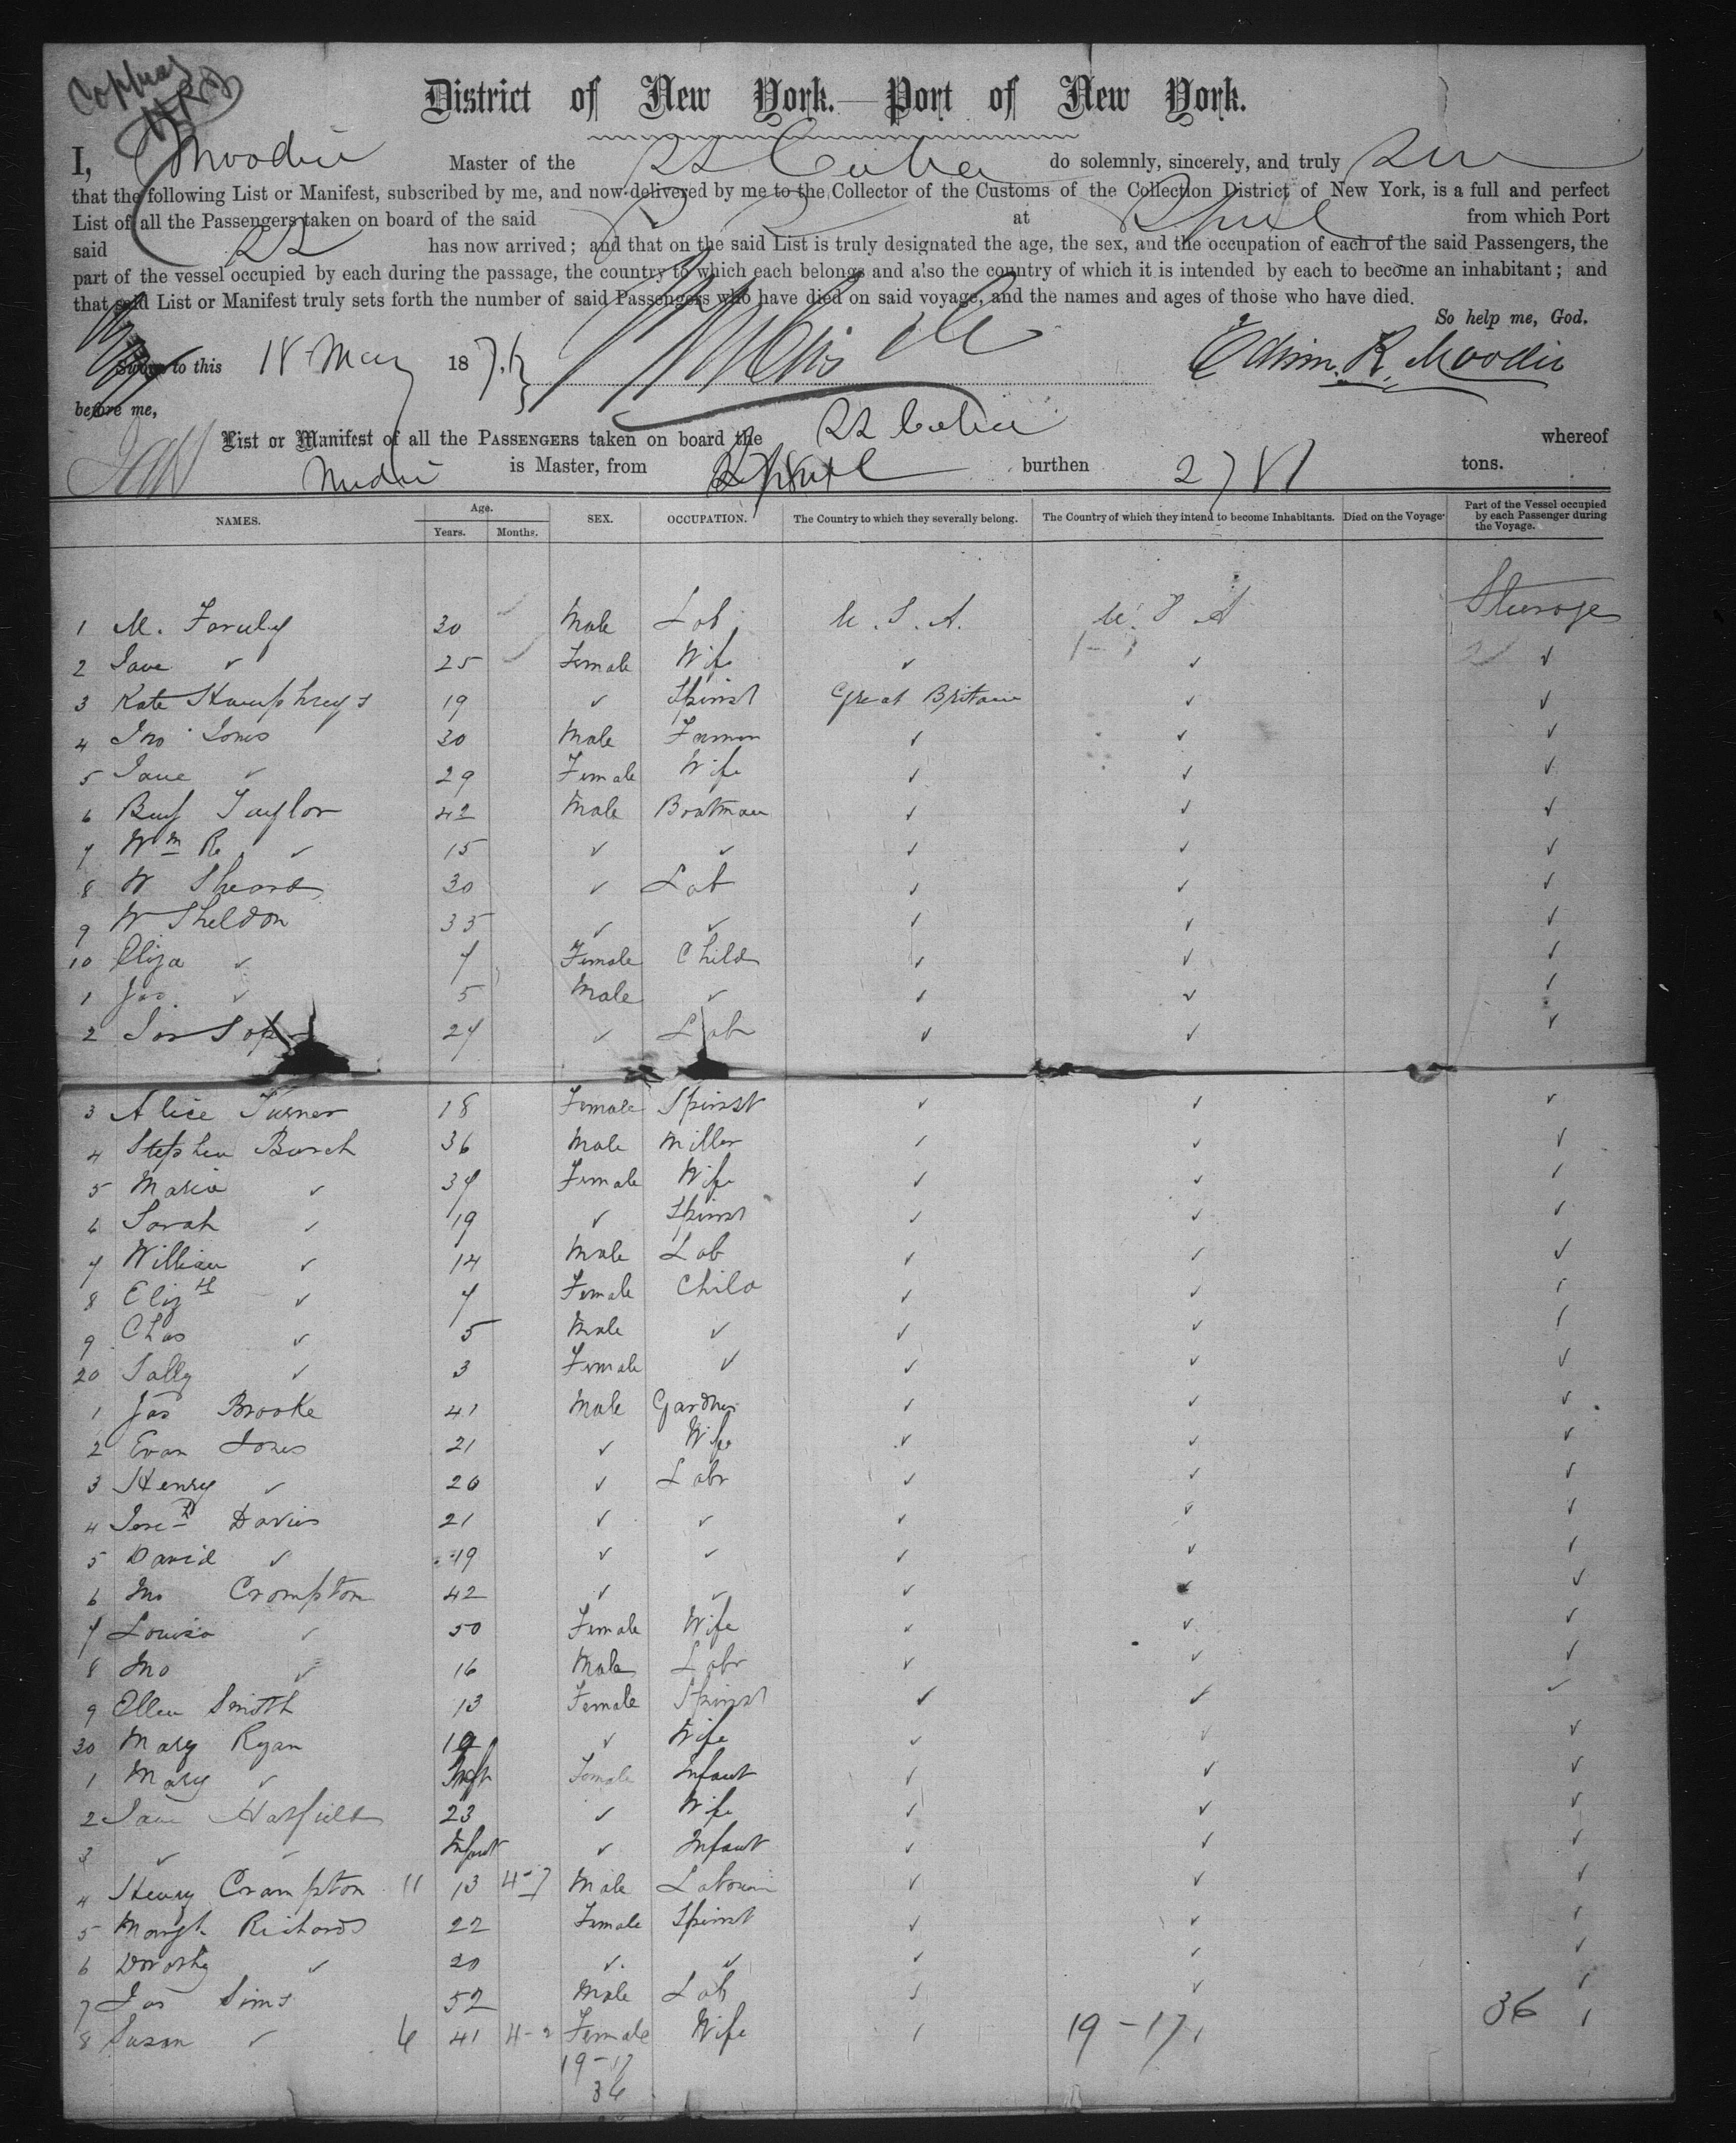 District of New York.—Port of New York.
I, Moodie Master of the SS Cuba do solemnly, sincerely, and truly
that the following List or Manifest, subscribed by me, and now delivered by me to the Collector of the Customs of the Collection District of New York, is a full and perfect
List of all the Passengers taken on board of the said at from which Port
said SS has now arrived; and that on the said List is truly designated the age, the sex, and the occupation of each of the said Passengers, the
part of the vessel occupied by each during the passage, the country to which each belongs and also the country of which it is intended by each to become an inhabitant; and
that said List or Manifest truly sets forth the number of said Passengers who have died on said voyage, and the names and ages of those who have died.
So help me, God.
Sworn to this 18 May 187 Edwin. R. Moodie
before me,
List or Manifest of all the PASSENGERS taken on board the SS whereof
is Master, from burthen tons.
NAMES. Age. Years. Months. SEX. OCCUPATION. The Country to which they severally belong. The Country of which they intend to become Inhabitants. Died on the Voyage Part of the Vessel occupied by each Passenger during the Voyage.
1 M. 30 Male Lab. U. S. A. U. S. A Steerage
2 Jane ✓ 25 Female Wife ✓ ✓ ✓
3 Kate Humphreys 19 ✓ Spinst Great Britain ✓ ✓
4 Jno Jones 30 Male Farmer ✓ ✓ ✓
5 Jane ✓ 29 Female Wife ✓ ✓ ✓
6 Benj Taylor 42 Male Boatman ✓ ✓ ✓
7 Wm R ✓ 15 ✓ ✓ ✓ ✓ ✓
8 W 30 ✓ Lab ✓ ✓ ✓
9 W Sheldon 35 ✓ ✓ ✓ ✓ ✓
10 Eliza ✓ 7 Female Child ✓ ✓ ✓
1 Jas. ✓ 5 Male ✓ ✓ ✓ ✓
2 27 ✓ Lab ✓ ✓ ✓
3 Alice Turner 18 Female Spinst ✓ ✓ ✓
4 Stephen Burch 36 Male Miller ✓ ✓ ✓
5 Maria ✓ 37 Female Wife ✓ ✓ ✓
6 Sarah ✓ 19 ✓ Spinst ✓ ✓ ✓
7 William ✓ 14 Male Lab ✓ ✓ ✓
8 Elizth ✓ 7 Female Child ✓ ✓ ✓
9 Chas ✓ 5 Male ✓ ✓ ✓ ✓
20 Sally ✓ 3 Female ✓ ✓ ✓ ✓
1 Jas Brooke 41 Male Gardner ✓ ✓ ✓
2 Evan Jones 21 ✓ Wife ✓ ✓ ✓
3 Henry ✓ 20 ✓ Labr ✓ ✓ ✓
4 Davies 21 ✓ ✓ ✓ ✓ ✓
5 David ✓ 19 ✓ ✓ ✓ ✓ ✓
6 Jno Crompton 42 ✓ ✓ ✓ ✓ ✓
7 Louisa ✓ 50 Female Wife ✓ ✓ ✓
8 Jno ✓ 16 Male Labr ✓ ✓ ✓
9 Ellen Smith 13 Female Spinst ✓ ✓ ✓
30 Mary Ryan 19 ✓ Wife ✓ ✓ ✓
1 Mary ✓ Inft Female Infant ✓ ✓ ✓
2 Jane Hatfield 23 ✓ Wife ✓ ✓ ✓
3 ✓ ✓ Infant ✓ Infant ✓ ✓ ✓
4 Henry Crampton 11 13 4-7 Male ✓ ✓ ✓
5 Margt. Richards 22 Female Spinst ✓ ✓ ✓
6 Dorothy ✓ 20 ✓ ✓ ✓ ✓ ✓
7 Jas Sims 52 Male Lab ✓ ✓ ✓
8 Susan ✓ 6 41 4-2 Female Wife ✓ 19-17 36 ✓
19-17
36